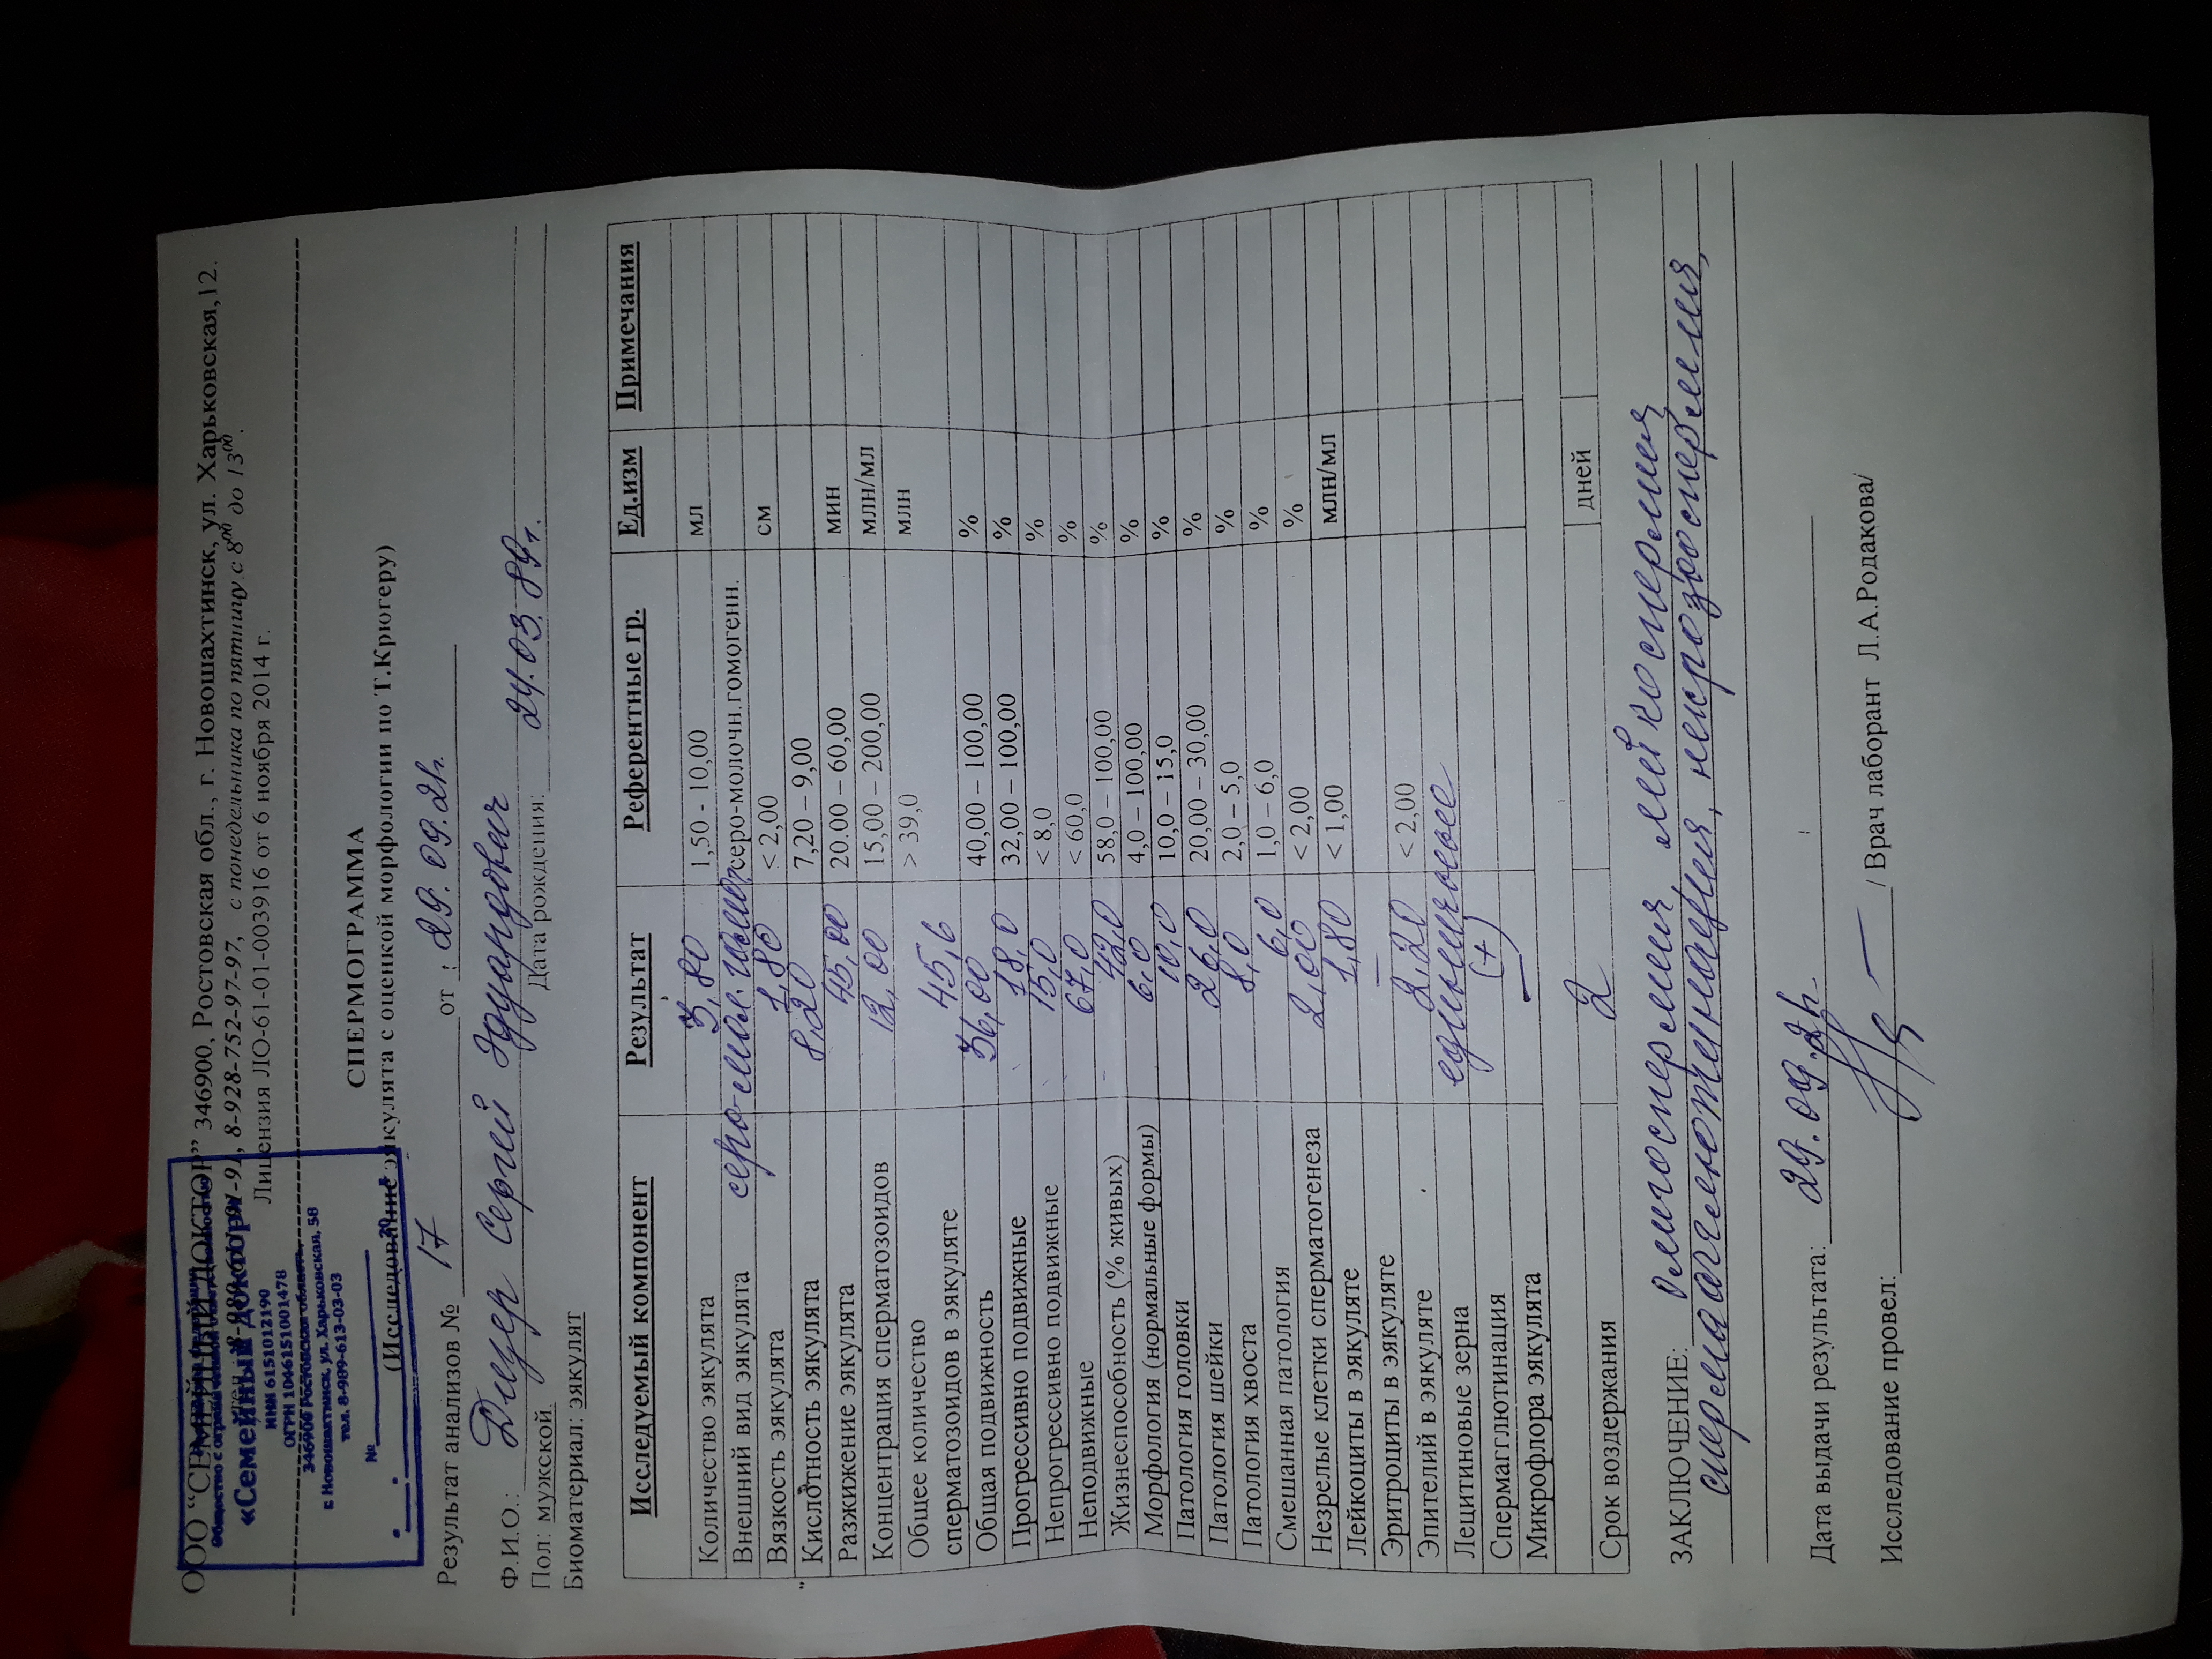 ООО “СЕМЕЙНЫЙ ДОКТОР” 346900, Ростовская обл., г. Новошахтинск, ул. Харьковская,12.
8-928-752-97-97, с понедельника по пятницу с 8⁰⁰ до 13⁰⁰.
Лицензия ЛО-61-01-003916 от 6 ноября 2014 г.
«Семейный доктор»
ИНН 6151012190
ОГРН 1046151001478
346900 Ростовская область,
г. Новошахтинск, ул. Харьковская, 58
тел. 8-989-613-03-03
№
СПЕРМОГРАММА
(Исследование эякулята с оценкой морфологии по Т.Крюгеру)
Результат анализов № 17 от : 29.09.21г.
Ф.И.О.: Дицер Сергей Эдуардович
Пол: мужской Дата рождения: 24.03.89г.
Биоматериал: эякулят
Исследуемый компонент Результат Референтные гр. Ед.изм Примечания
Количество эякулята 3,80 1,50 - 10,00 мл
Внешний вид эякулята серо-мол. гомог. серо-молочн.гомогенн.
Вязкость эякулята 1,80 < 2,00 см
Кислотность эякулята 8,20 7,20 – 9,00
Разжижение эякулята 45,00 20.00 – 60,00 мин
Концентрация сперматозоидов 12,00 15,00 – 200,00 млн/мл
Общее количество сперматозоидов в эякуляте 45,6 > 39,0 млн
Общая подвижность 36,00 40,00 – 100,00 %
Прогрессивно подвижные 18,0 32,00 – 100,00 %
Непрогрессивно подвижные 15,0 < 8,0 %
Неподвижные 67,0 < 60,0 %
Жизнеспособность (% живых) 42,0 58,0 – 100,00 %
Морфология (нормальные формы) 6,0 4,0 – 100,00 %
Патология головки 10,0 10,0 – 15,0 %
Патология шейки 26,0 20,00 – 30,00 %
Патология хвоста 8,0 2,0 – 5,0 %
Смешанная патология 6,0 1,0 – 6,0 %
Незрелые клетки сперматогенеза 2,00 < 2,00 %
Лейкоциты в эякуляте 1,80 < 1,00 млн/мл
Эритроциты в эякуляте –
Эпителий в эякуляте 2,20 < 2,00
Лецитиновые зерна единичные
Спермагглютинация (+)
Микрофлора эякулята –
Срок воздержания 2 дней
ЗАКЛЮЧЕНИЕ: Олигоспермия, лейкоспермия
спермаагглютинация, некрозооспермия,
Дата выдачи результата: 29.09.21г.
Исследование провел: / Врач лаборант Л.А.Родакова/